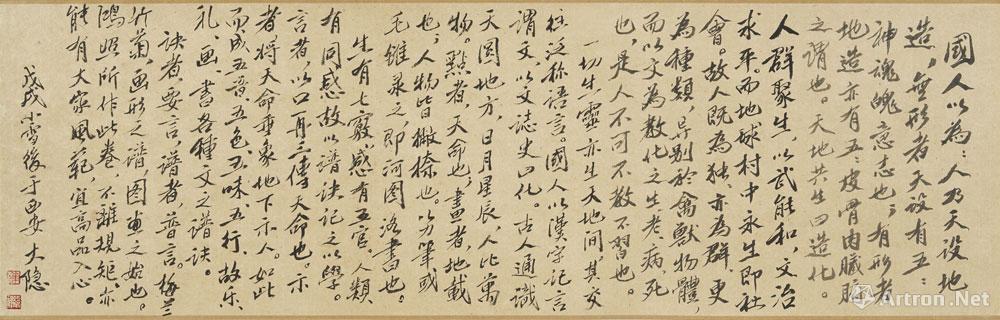 國人以為:人乃天設地
造,無形者天設有五:
神魂魄意志也;有形者
地造亦有五:皮骨肉臟腑
之謂也。天地共生曰造化。
人群聚生,以武能和,文治
求平。而地球村中永生即社
會。故人既為獨,亦為群,更
為種類,导别於禽獸物體,
而以文為教化之生老、病死
也,是人不可不教不習也。
一切生靈亦生天地間,其交
往泛称語言。國人以漢字記言
謂文,以文誌史曰化。古人通識
天圆地方,日月星辰,人比萬
物。點者,天命也,畫者,地載
也,人物皆撇捺也。以芴筆或
毛锥录之,即河图洛書也。
生有七竅,感有五官,人類
有同感故以譜诀記之以學。
言者,以口耳三傳天命也。示
者将天命垂象地下示人。如此
而成五音、五色、五味、五行,故乐、
礼、画、書各種文之譜诀。
诀者,要言,譜者,普言。梅蘭
竹菊,画形之譜,图画之始也。
鴻照所作此卷,不離規矩,亦
能有大家風範,宜高品入心。
戊戌小雪後于思安大隐
Artron.Net